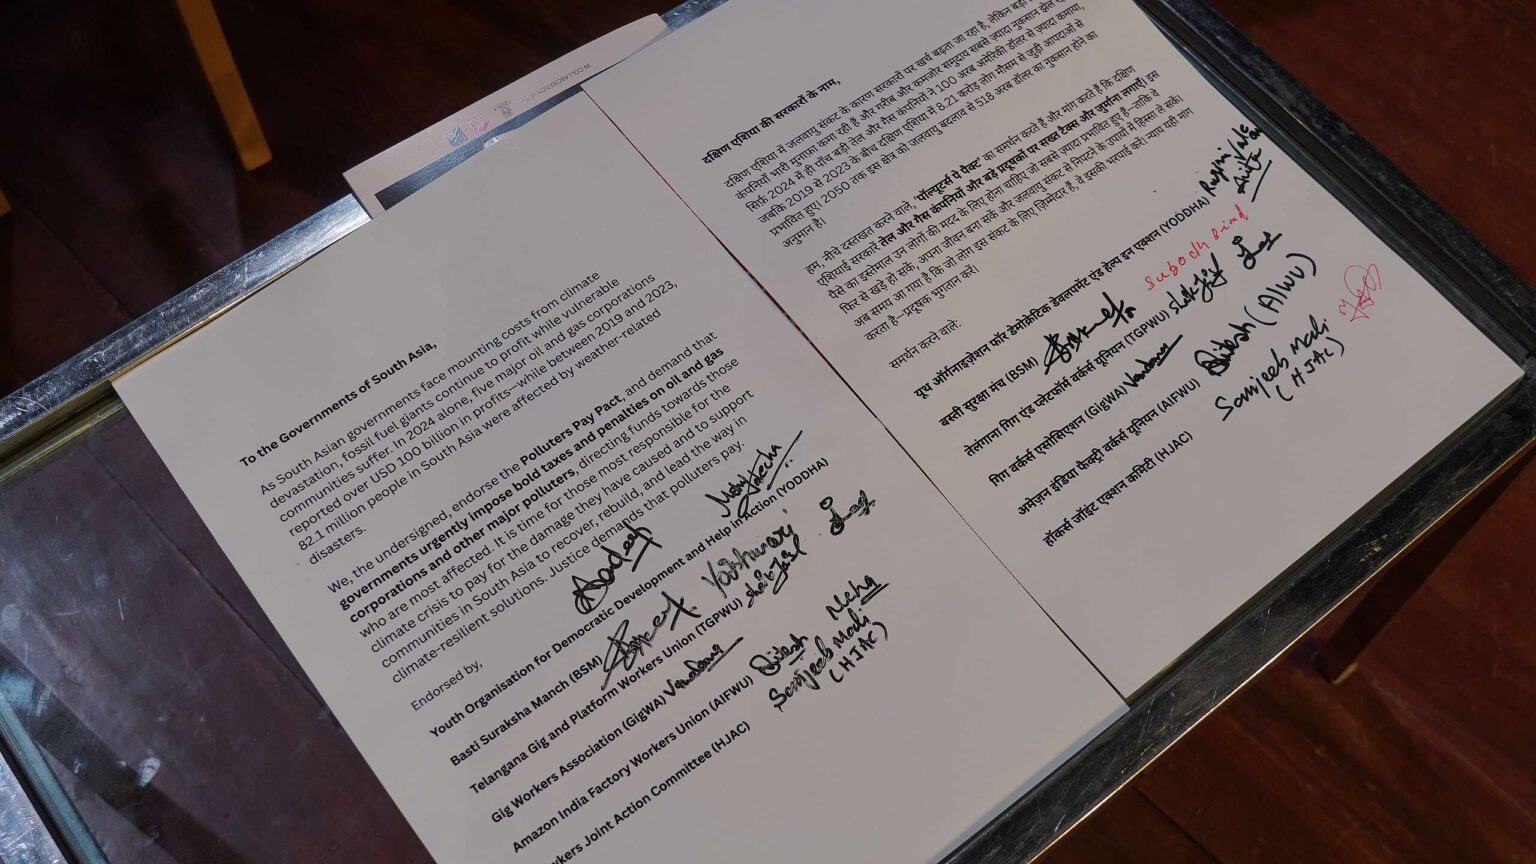 IN COLLABORATION WITH
To the Governments of South Asia,
As South Asian governments face mounting costs from climate
devastation, fossil fuel giants continue to profit while vulnerable
communities suffer. In 2024 alone, five major oil and gas corporations
reported over USD 100 billion in profits—while between 2019 and 2023,
82.1 million people in South Asia were affected by weather-related
disasters.
We, the undersigned, endorse the Polluters Pay Pact, and demand that
governments urgently impose bold taxes and penalties on oil and gas
corporations and other major polluters, directing funds towards those
who are most affected. It is time for those most responsible for the
climate crisis to pay for the damage they have caused and to support
communities in South Asia to recover, rebuild, and lead the way in
climate-resilient solutions. Justice demands that polluters pay.
Endorsed by,
Youth Organisation for Democratic Development and Help in Action (YODDHA)
Basti Suraksha Manch (BSM)
Telangana Gig and Platform Workers Union (TGPWU)
Gig Workers Association (GigWA) Vandana
Amazon India Factory Workers Union (AIFWU)
Neha
kers Joint Action Committee (HJAC)
Sanjeeb Madi
(HJAC)
दक्षिण एशिया की सरकारों के नाम,
दक्षिण एशिया में जलवायु संकट के कारण सरकारों पर खर्च बढ़ता जा रहा है, लेकिन बड़ी
कंपनियाँ भारी मुनाफ़ा कमा रही हैं और गरीब और कमजोर समुदाय सबसे ज़्यादा नुकसान झेल
सिर्फ 2024 में ही पाँच बड़ी तेल और गैस कंपनियों ने 100 अरब अमेरिकी डॉलर से ज़्यादा कमाया,
जबकि 2019 से 2023 के बीच दक्षिण एशिया में 8.21 करोड़ लोग मौसम से जुड़ी आपदाओं से
प्रभावित हुए। 2050 तक इस क्षेत्र को जलवायु बदलाव से 518 अरब डॉलर का नुकसान होने का
अनुमान है।
हम, नीचे दस्तखत करने वाले, 'पॉल्यूटर्स पे पैक्ट' का समर्थन करते हैं और मांग करते हैं कि दक्षिण
एशियाई सरकारें तेल और गैस कंपनियों और बड़े प्रदूषकों पर सख्त टैक्स और जुर्माना लगाएँ। इस
पैसे का इस्तेमाल उन लोगों की मदद के लिए होना चाहिए जो सबसे ज़्यादा प्रभावित हुए हैं—ताकि वे
फिर से खड़े हो सकें, अपना जीवन बना सकें और जलवायु संकट से निपटने के उपायों में हिस्सा ले सकें।
अब समय आ गया है कि जो लोग इस संकट के लिए ज़िम्मेदार हैं, वे इसकी भरपाई करें। न्याय यही मांग
करता है—प्रदूषक भुगतान करें।
समर्थन करने वाले:
यूथ ऑर्गनाइज़ेशन फॉर डेमोक्रेटिक डेवलपमेंट एंड हेल्प इन एक्शन (YODDHA)
बस्ती सुरक्षा मंच (BSM)
तेलंगाना गिग एंड प्लेटफॉर्म वर्कर्स यूनियन (TGPWU)
गिग वर्कर्स एसोसिएशन (GigWA) Vandana
अमेज़न इंडिया फैक्ट्री वर्कर्स यूनियन (AIFWU)
(AIWU)
हॉकर्स जॉइंट एक्शन कमिटी (HJAC)
Sanjeeb Madi
(HJAC)